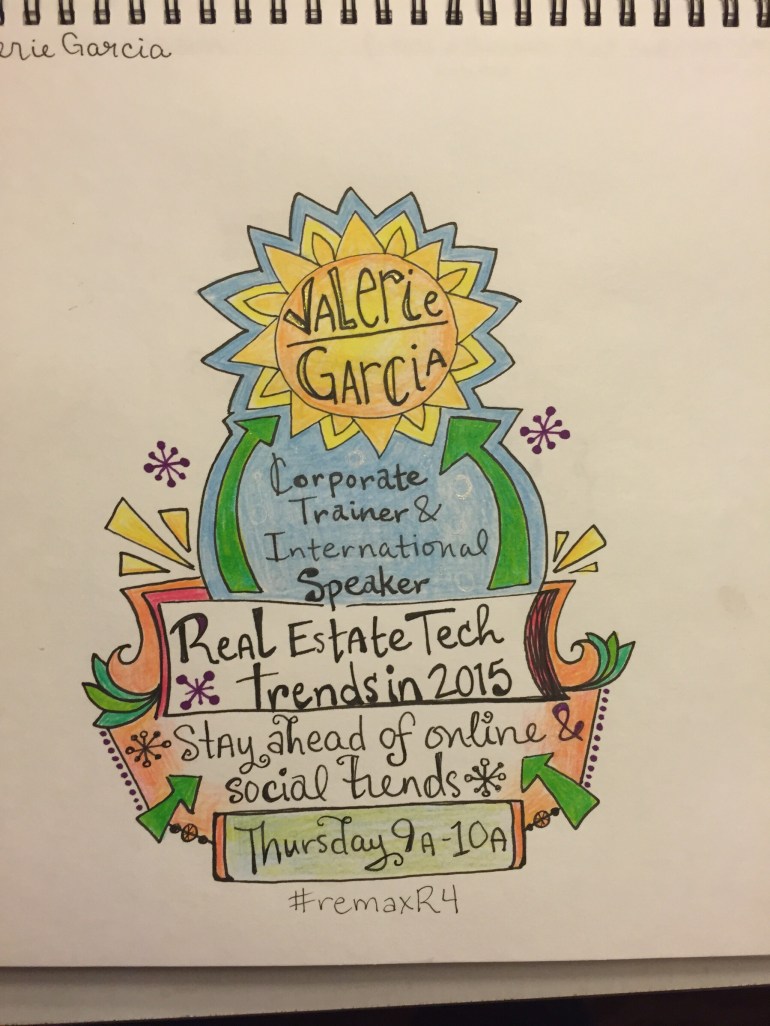 Garcia
VALerie
GArciA
Corporate
Trainer &
International
Speaker
ReaL EstAte Tech
trends in 2015
StAy ahead of online &
social trends
Thursday 9A-10A
#remaxR4